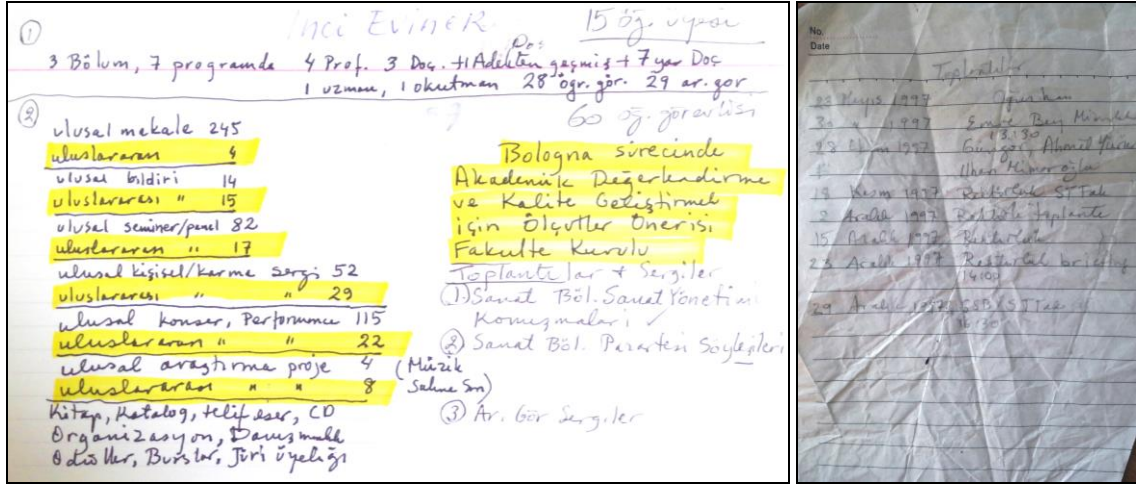 İnci Eviner
15 öğ. üyesi
①
3 Bölum, 7 programda 4 Prof. 3 Doç. +1 geçmiş + 7 yar Doç
1 uzman, 1 okutman 28 öğr. gör. 29 ar. gor
②
60 öğ. görevlisi
ulusal makale 245
uluslararası 4
ulusal bildiri 14
uluslararası " 15
ulusal seminer/panel 82
uluslararası " 17
ulusal kişisel/karma sergi 52
uluslararası " " 29
ulusal konser, Performance 115
uluslararası " " 22
ulusal araştırma proje 4 (Müzik
uluslararası " " 8 Sahne Sn)
Kitap, Katalog, telif eser, CD
Organizasyon, Danışmalık
Ödüller, Burslar, Jüri üyeliği
Bologna sürecinde
Akademik Değerlendirme
ve Kalite Geliştirmek
için Ölçütler Önerisi
Fakulte Kurulu
Toplantılar + Sergiler
① Sanat Böl. Sanat Yönetimi
Konuşmaları ✓
② Sanat Böl. Pazartesi Söyleşileri
③ Ar. Gör Sergiler
No.
Date
Toplantılar
28 Mayıs 1997
30 " 1997 Emre Bey
13:30
1997 Güngör, Ahmet
İlhan Mimaroğlu
18 Kasım 1997 Rektörlük
2 Aralık 1997 Rektörlük toplantı
15 Aralık 1997 Rektörlük
23 Aralık 1997 Rektörlük brifing
14:00
29 Aralık 1997